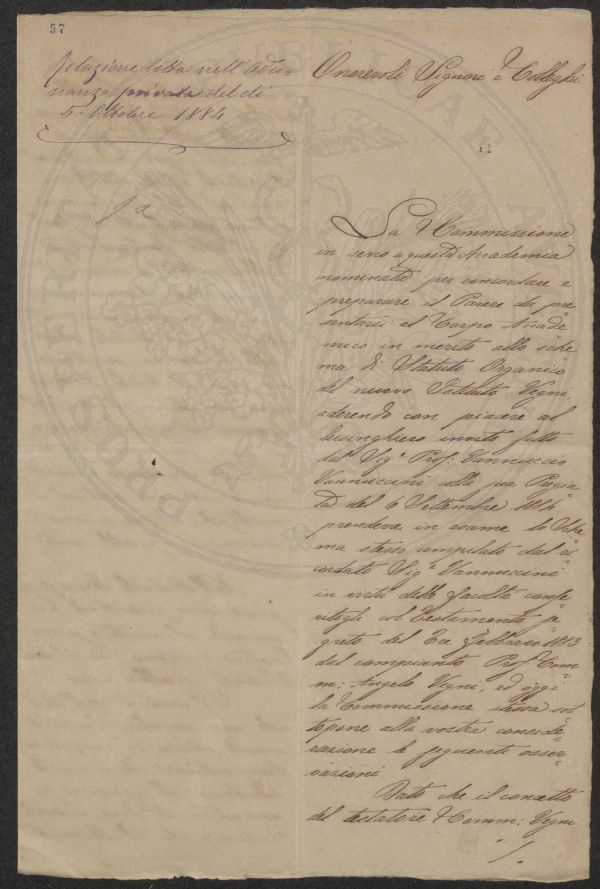 57
Relazione letta nell'Adu-
nanza privata del di
5. Ottobre 1884
Onorevoli Signori e Colleghi
11
1ª
La Commissione
in seno a questa Accademia
nominata per concordare e
preparare il Parere da pre=
sentarsi al Corpo Accade=
mico in merito allo sche=
ma di Statuto Organico
del nuovo Istituto Vegni,
aderendo con piacere al
lusinghiero invito fatto
dal Sigr. Prof: Vannuccio
Vannuccini colla sua Pregia=
ta del 6 Settembre 1884
prendeva in esame lo Sche=
ma stesso compilato dal ri=
cordato Sigr. Vannuccini
in virtù delle facoltà confe=
ritegli col Testamento se=
greto del Tre Febbraio 1883
dal compianto Prof. Com=
m: Angelo Vegni, ed oggi
la Commissione stessa sot=
topone alla vostra conside=
razione le seguenti osser=
vazioni.
Dato che il concetto
del testatore Comm: Vegni
./.
PROSPERITATI PUBLICAE